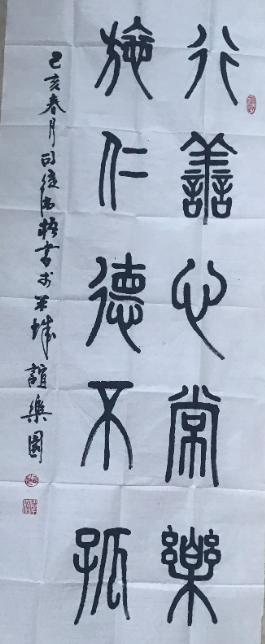 行善心常樂
施仁德不孤
己亥春月司徒浩楷書於羊城誼樂園